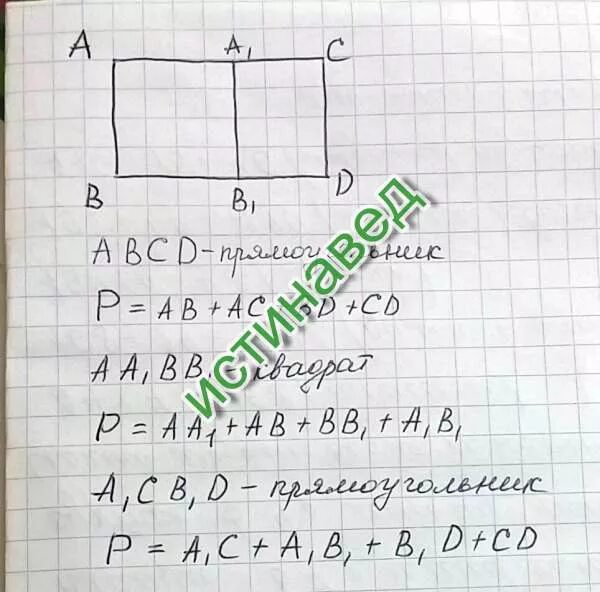 A A₁ C
B B₁ D
ABCD - прямоугольник
P = AB + AC + BD + CD
AA₁BB₁ - квадрат
P = AA₁ + AB + BB₁ + A₁B₁
A₁CB₁D - прямоугольник
P = A₁C + A₁B₁ + B₁D + CD
истинавед